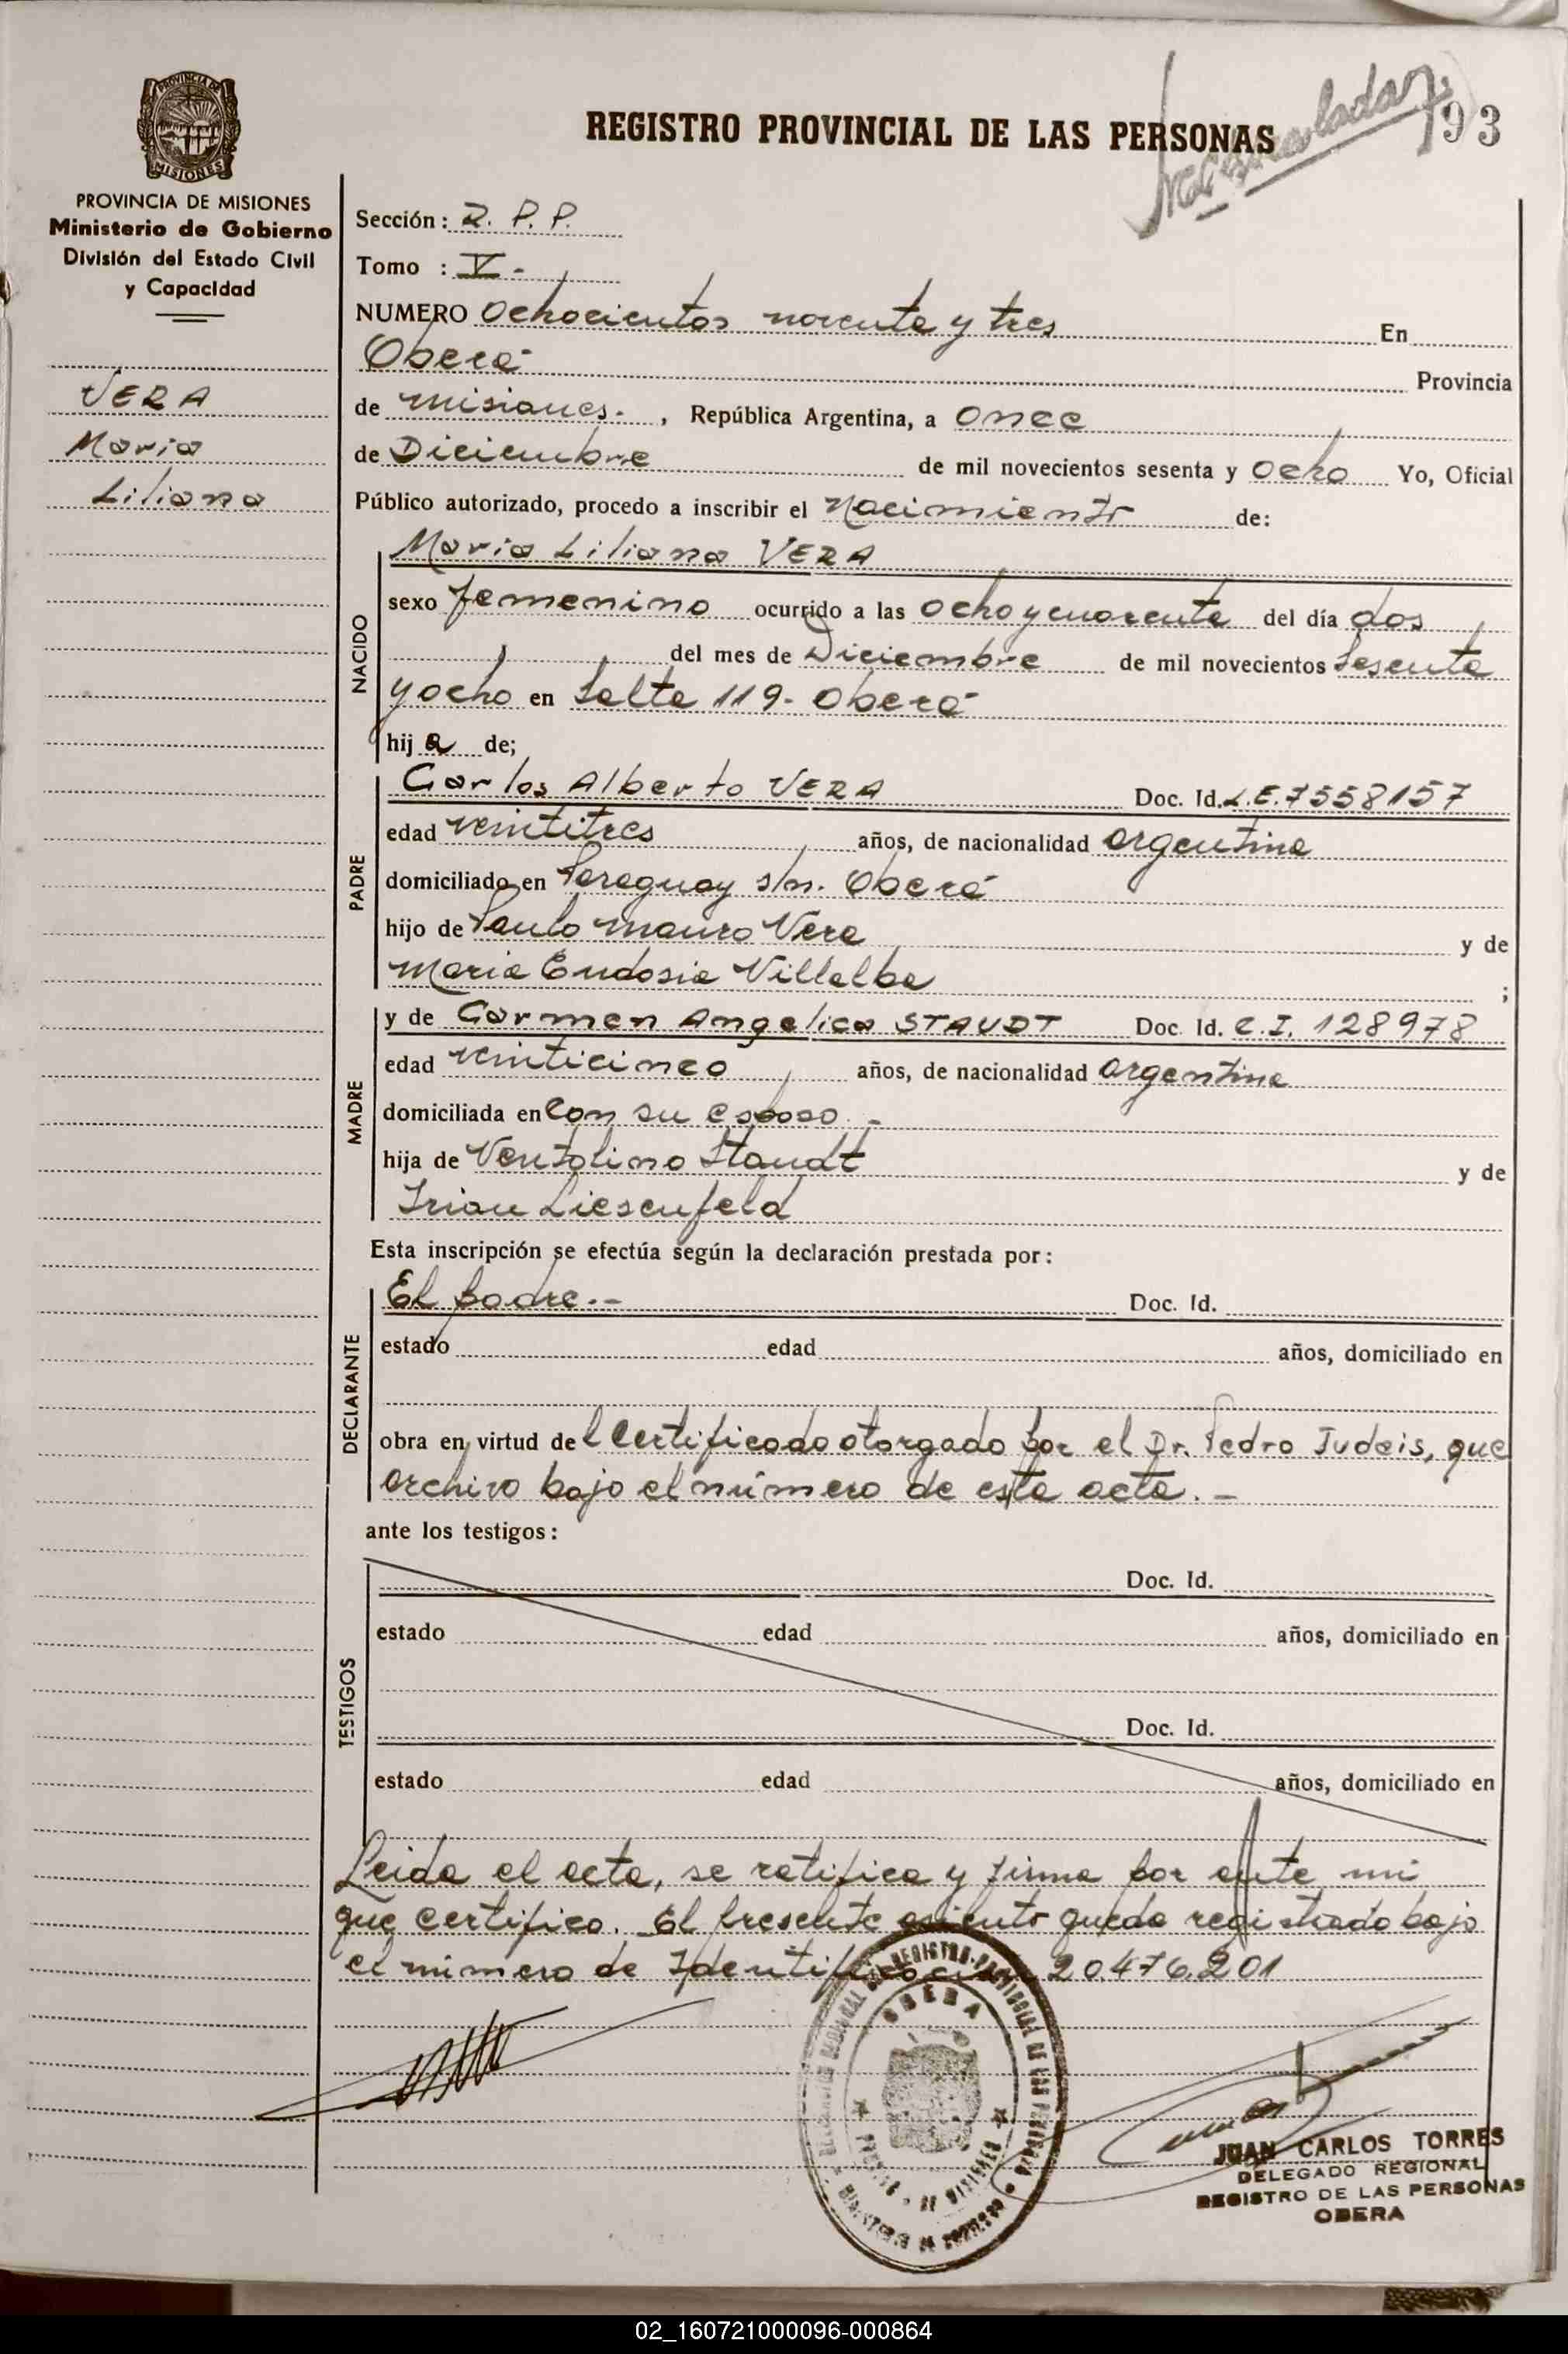 REGISTRO PROVINCIAL DE LAS PERSONAS
93
PROVINCIA DE MISIONES
Ministerio de Gobierno
División del Estado Civil
y Capacidad
VERA
Maria
Liliana
Sección: R. P. P.
Tomo : V -
NUMERO Ochocientos noventa y tres En
Oberá
Provincia
de Misiones. , República Argentina, a once
de Diciembre de mil novecientos sesenta y Ocho Yo, Oficial
Público autorizado, procedo a inscribir el Nacimiento de:
NACIDO
Maria Liliana VERA
sexo femenino ocurrido a las ocho y cuarenta del día dos
del mes de Diciembre de mil novecientos sesenta
y ocho en Salta 119- Oberá
hij a de;
PADRE
Carlos Alberto VERA Doc. Id. L.E. 7558157
edad veintitres años, de nacionalidad argentina
domiciliado en Paraguay s/n. Oberá
hijo de Paulo Mauro Vera y de
Maria Eudosia Villalba ;
MADRE
y de Carmen Angelica STAUDT Doc. Id. C.I. 128978
edad veinticinco años, de nacionalidad argentina
domiciliada en con su esposo. -
hija de Ventolino Staudt y de
Irian Liesenfeld
Esta inscripción se efectúa según la declaración prestada por:
DECLARANTE
El padre.- Doc. Id.
estado edad años, domiciliado en
obra en virtud del certificado otorgado por el Dr. Pedro Judais, que
archivo bajo el número de esta acta. -
ante los testigos:
TESTIGOS
Doc. Id.
estado edad años, domiciliado en
Doc. Id.
estado edad años, domiciliado en
Leida el acta, se ratifica y firma por ante mi
que certifico. El presente asiento queda registrado bajo
el número de Identificación 20.476.201
OBERA
JUAN CARLOS TORRES
DELEGADO REGIONAL
REGISTRO DE LAS PERSONAS
OBERA
02_160721000096-000864